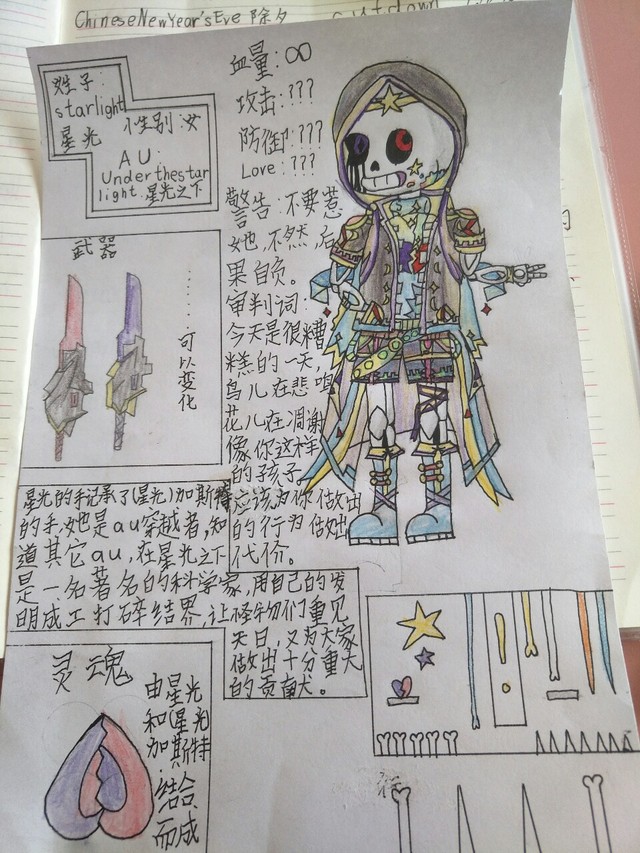 ChineseNewYear'sEve 除夕
姓子:
starlight
星光
性别:女
AU:
Underthestar
light.星光之下
血量:∞
攻击:???
防御:???
Love:???
警告:不要惹
她,不然,后
果自负。
审判词:
今天是很糟
糕的一天,
鸟儿在悲鸣
花儿在凋谢
像你这样
的孩子
应该为你做出
的行为做出
代价。
武器
......可以变化
星光的手记承了(星光)加斯特
的手,她是au穿越者,知
道其它au,在星光之下
是一名著名的科学家,用自己的发
明成工打碎结界,让怪物们重见
天日,又为大家
做出十分重大
的贡献。
灵魂
由星光
和(星光
加斯特
结合
而成